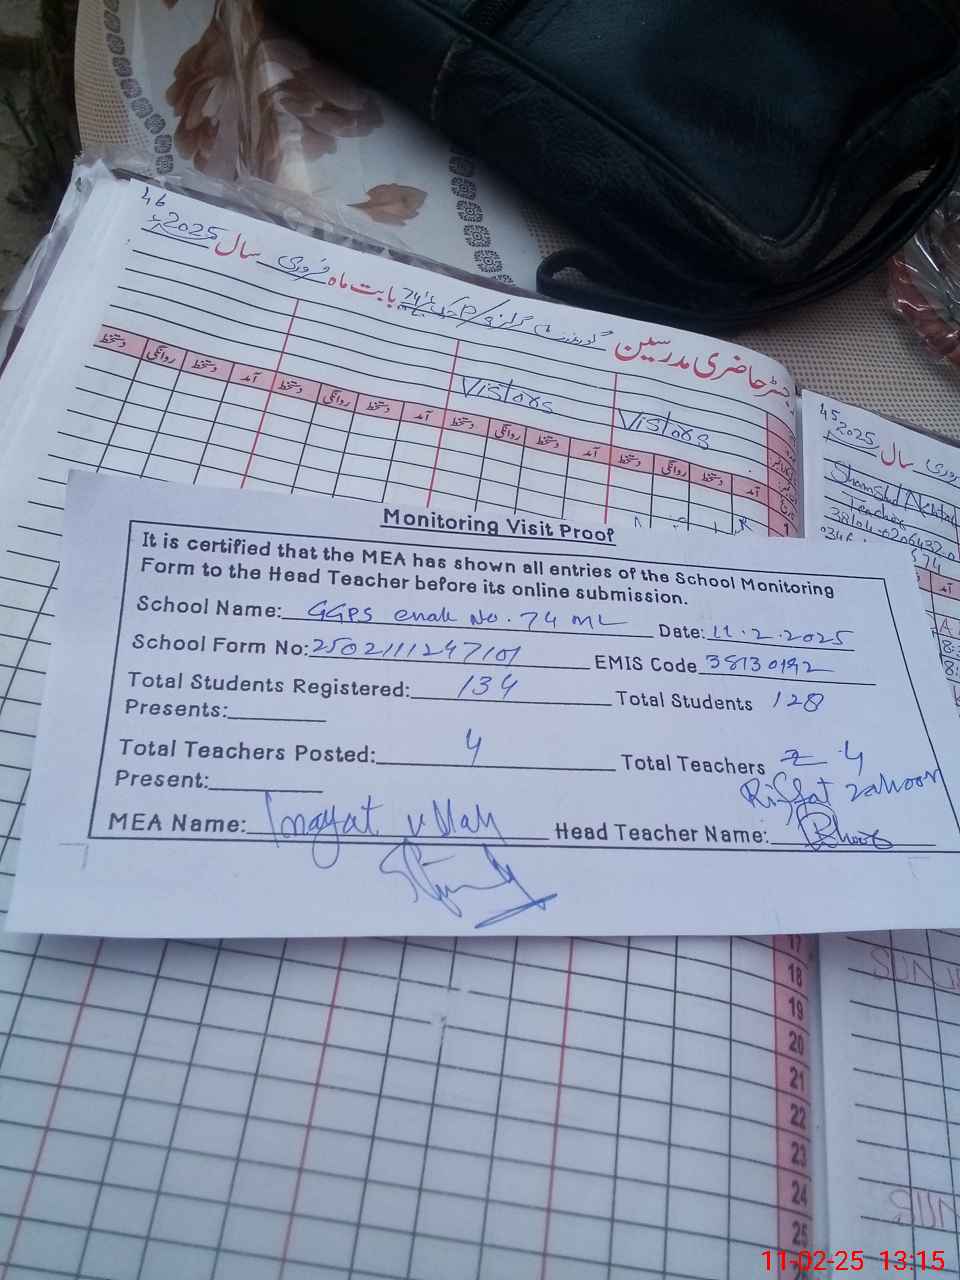 46
2025 سال فروری بابت ماہ
رجسٹر حاضری مدرسین
دستخط روانگی دستخط آمد دستخط روانگی دستخط آمد دستخط روانگی دستخط آمد دستخط روانگی دستخط آمد
Vistors
Vistors
45
2025 سال
Shamshad Akhtar
Teacher
Monitoring Visit Proof
It is certified that the MEA has shown all entries of the School Monitoring
Form to the Head Teacher before its online submission.
School Name: GGPS chak No. 74 ML Date: 11.2.2025
School Form No: 2502111247101 EMIS Code 38130192
Total Students Registered: 134 Total Students 128
Presents:
Total Teachers Posted: 4 Total Teachers 4
Present:
Riffat zahoor
MEA Name: Inayat ullah Head Teacher Name:
17
18
19
20
21
22
23
24
25
11-02-25 13:15